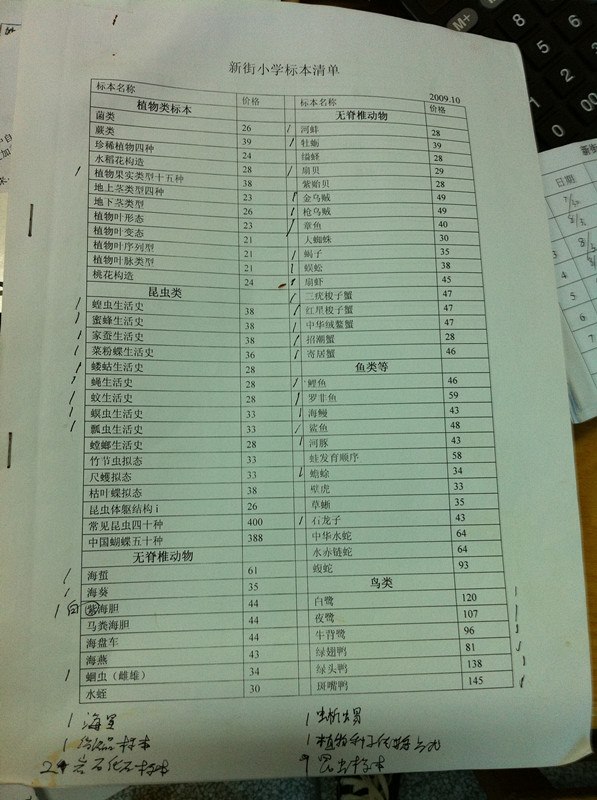 新街小学标本清单
2009.10
标本名称 价格
植物类标本
菌类 26
蕨类 39
珍稀植物四种 24
水稻花构造 28
植物果实类型十五种 38
地上茎类型四种 23
地下茎类型 26
植物叶形态 23
植物叶变态 21
植物叶序列型 21
植物叶脉类型 21
桃花构造 24
昆虫类
蝗虫生活史 38
蜜蜂生活史 38
家蚕生活史 38
菜粉蝶生活史 36
蝼蛄生活史 28
蝇生活史 28
蚊生活史 28
蜈虫生活史 33
瓢虫生活史 33
螳螂生活史 28
竹节虫拟态 33
尺蠖拟态 33
枯叶蝶拟态 38
昆虫体躯结构 i 26
常见昆虫四十种 400
中国蝴蝶五十种 388
无脊椎动物
海蜇 61
海葵 35
白 紫海胆 44
马粪海胆 44
海盘车 44
海燕 43
蛔虫（雌雄） 34
水蛭 30
标本名称 价格
无脊椎动物
河蚌 28
牡蛎 39
缢蛏 28
扇贝 29
紫贻贝 28
金乌贼 49
枪乌贼 49
章鱼 40
人蜘蛛 30
蝎子 35
蜈蚣 38
扇虾 45
二疣梭子蟹 47
红星梭子蟹 47
中华绒螯蟹 47
招潮蟹 28
寄居蟹 46
鱼类等
鲤鱼 46
罗非鱼 59
海鳗 43
鲨鱼 48
河豚 43
蛙发育顺序 58
蟾蜍 34
壁虎 33
草蜥 35
石龙子 43
中华水蛇 64
水赤链蛇 64
蝮蛇 93
鸟类
白鹭 120
夜鹭 107
牛背鹭 96
绿翅鸭 81
绿头鸭 138
斑嘴鸭 145
1 海星
24 岩石化石标本
日期
M+
8
5
6
2
3
0
00